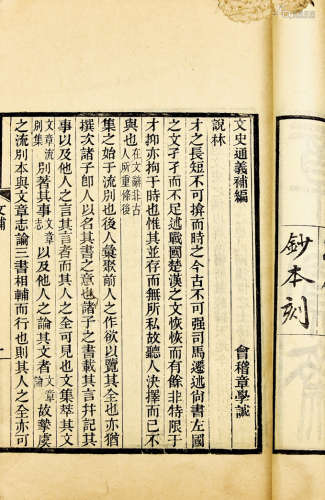 文史通義補編
會稽章學誠
說林
才之長短不可揜而時之今古不可强司馬遷述尚書左國
之文孑孑而不足述戰國楚漢之文恢恢而有餘非特限于
才抑亦拘于時也惟其並存而無所私故聽人決擇而己不
與也在文辭非古人所重條後
集之始于流別也後人彙聚前人之作欲以覽其全也亦猶
撰次諸子卽人以名其書之意也諸子之書載其言并記其
事以及他人之言其言者而其人之全可見也文集萃其文
文章流別集別著其事文章志以及他人之論其文者文章論故摯虞
之流別本與文章志論三書相輔而行也則其人之全亦可
鈔本刻